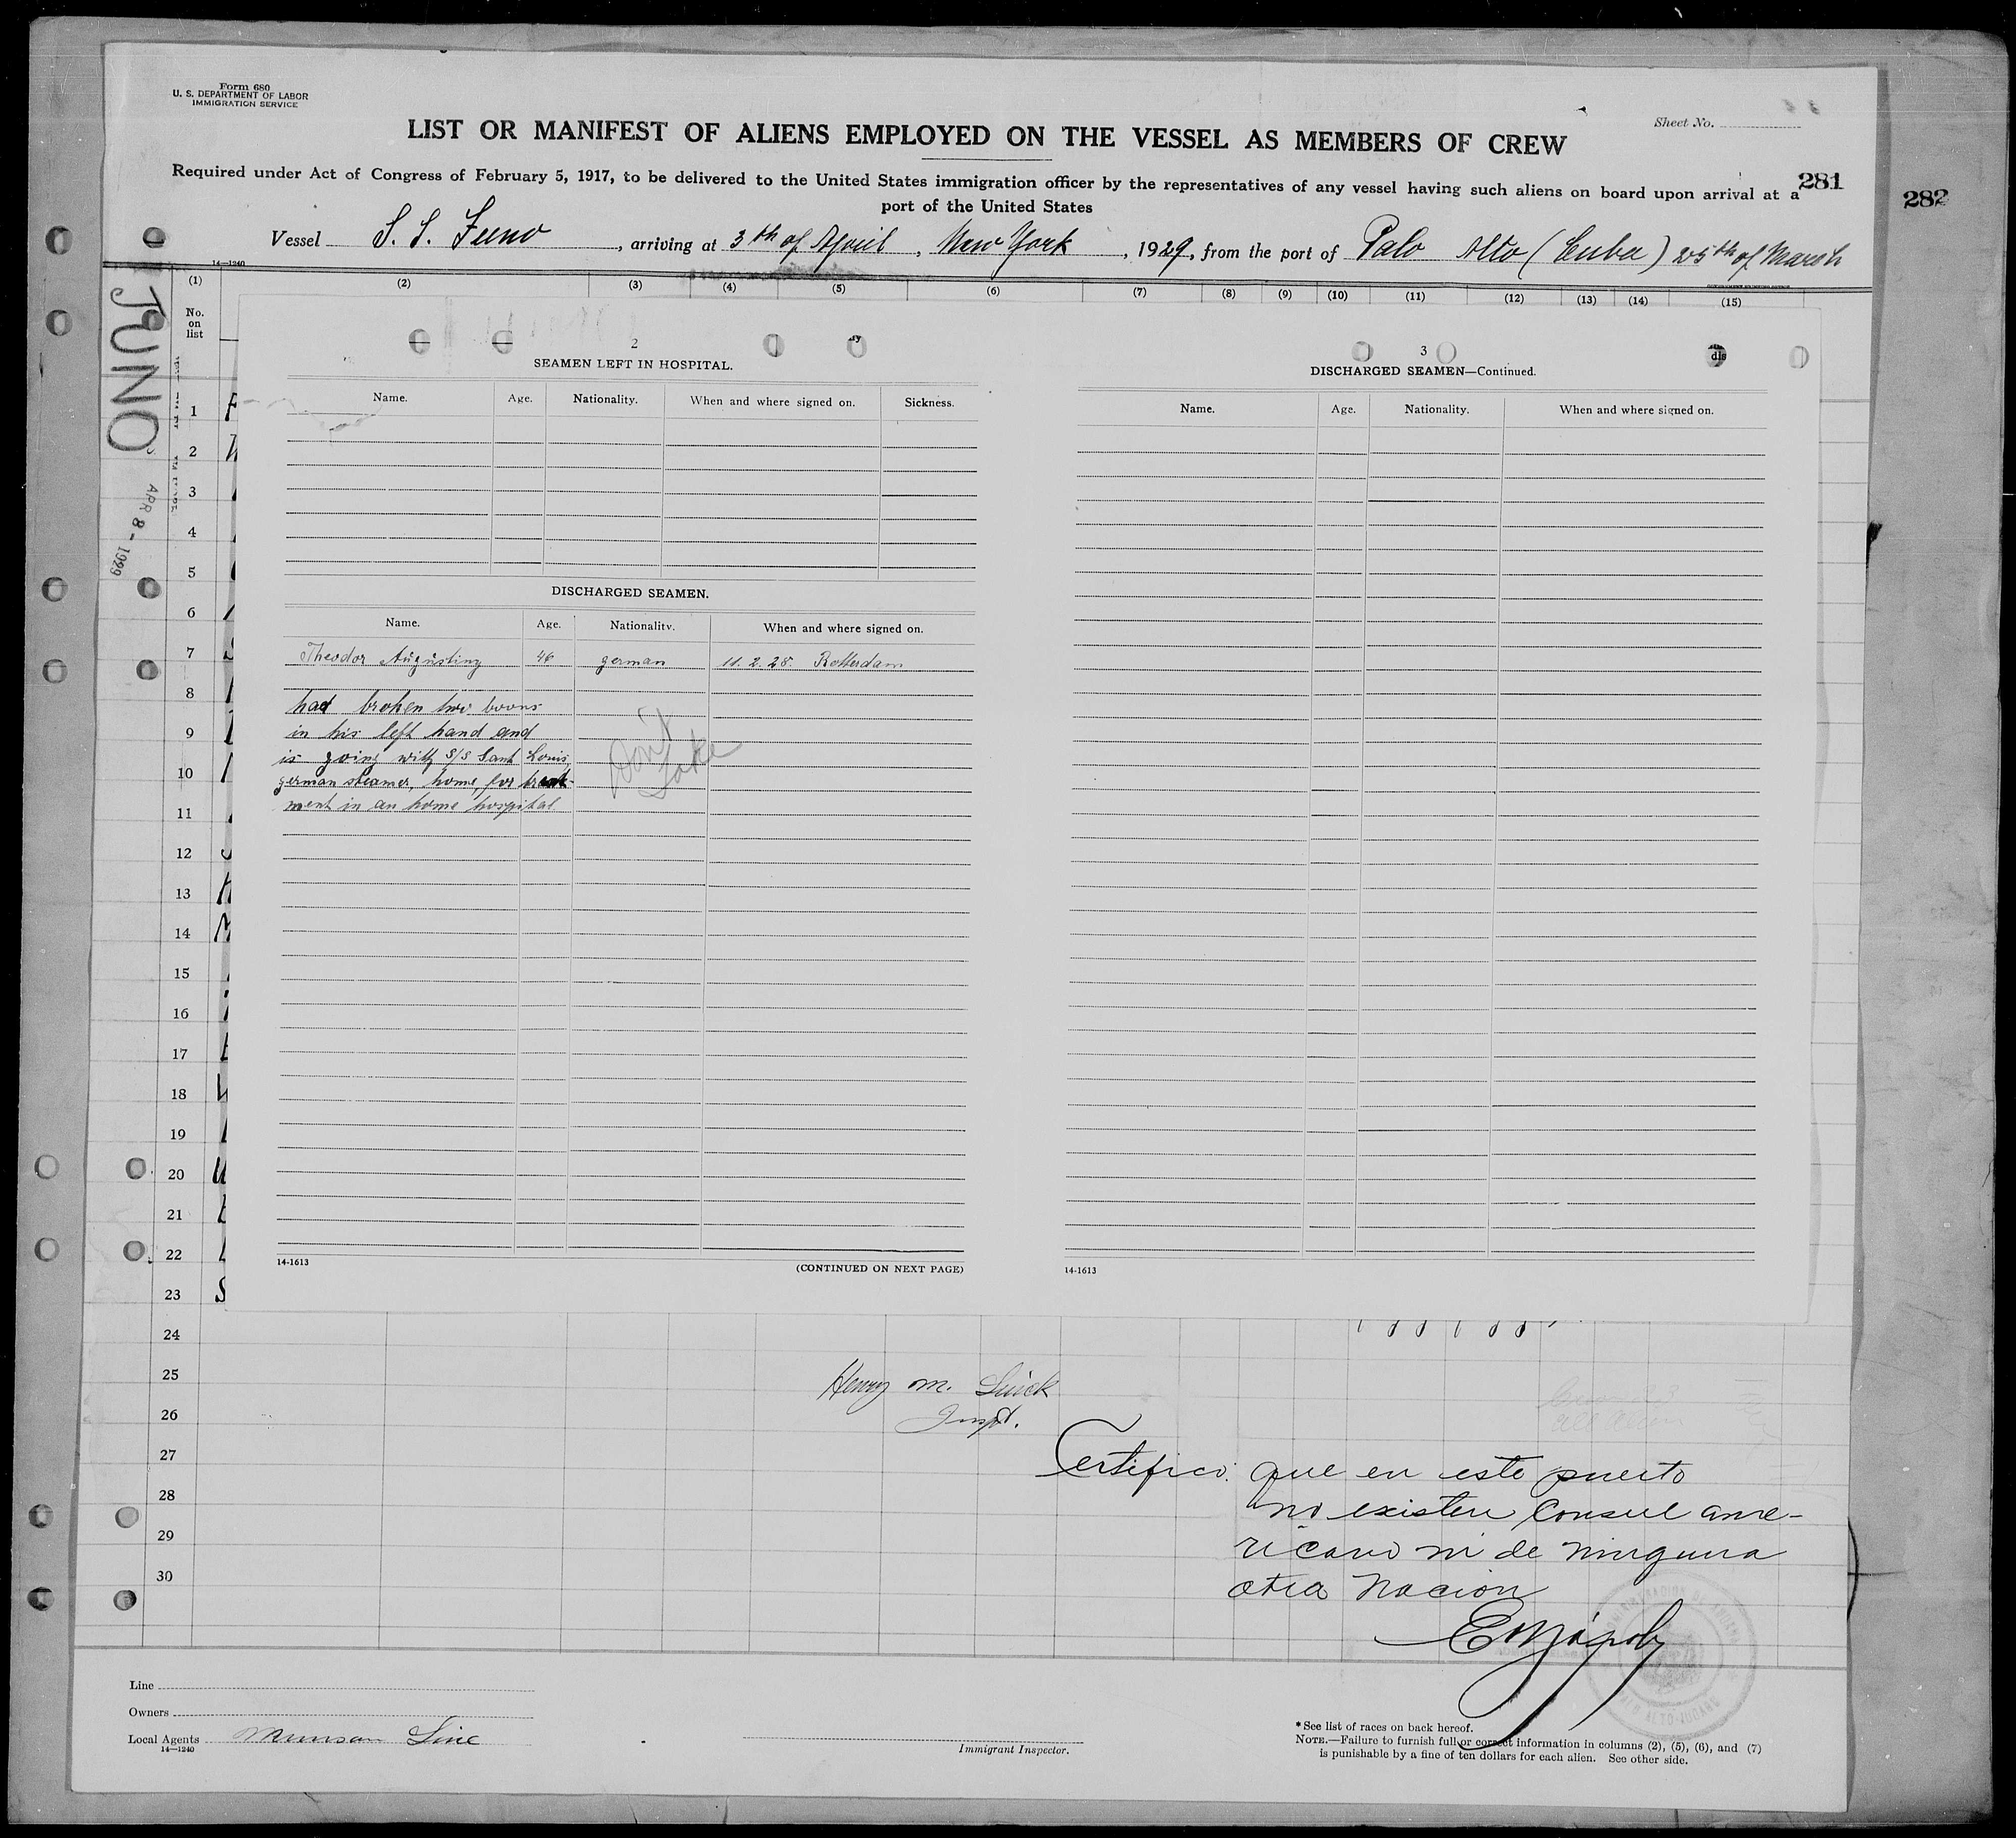 Form 680
U. S. DEPARTMENT OF LABOR
IMMIGRATION SERVICE
Sheet No.
LIST OR MANIFEST OF ALIENS EMPLOYED ON THE VESSEL AS MEMBERS OF CREW
Required under Act of Congress of February 5, 1917, to be delivered to the United States immigration officer by the representatives of any vessel having such aliens on board upon arrival at a
port of the United States
281
282
Vessel S. S. Juno, arriving at 3th of April, New York, 1929, from the port of Palo Alto (Cuba) 25th of March
14—1240
(1) (2) (3) (4) (5) (6) (7) (8) (9) (10) (11) (12) (13) (14) (15)
No.
on
list
JUNO
APR 8 - 1929
1
2
3
4
5
6
7
8
9
10
11
12
13
14
15
16
17
18
19
20
21
22
23
24
25
26
27
28
29
30
2
SEAMEN LEFT IN HOSPITAL.
Name. Age. Nationality. When and where signed on. Sickness.
DISCHARGED SEAMEN.
Name. Age. Nationality. When and where signed on.
Theodor Augustiny 46 german 11. 2. 28. Rotterdam
had broken two boons
in his left hand and
is going with S/S Sant Louis,
german steamer, home, for treat-
ment in an home hospital
Don't
take
14-1613
(CONTINUED ON NEXT PAGE)
3
dis
DISCHARGED SEAMEN—Continued.
Name. Age. Nationality. When and where signed on.
14-1613
Henry M.
Inspt.
Certifico: que en este puerto
no existen Consul ame-
ricano ni de ninguna
otra nacion
Line
Owners
Local Agents Munson Line
14—1240
Immigrant Inspector.
*See list of races on back hereof.
NOTE.—Failure to furnish full or correct information in columns (2), (5), (6), and (7)
is punishable by a fine of ten dollars for each alien. See other side.